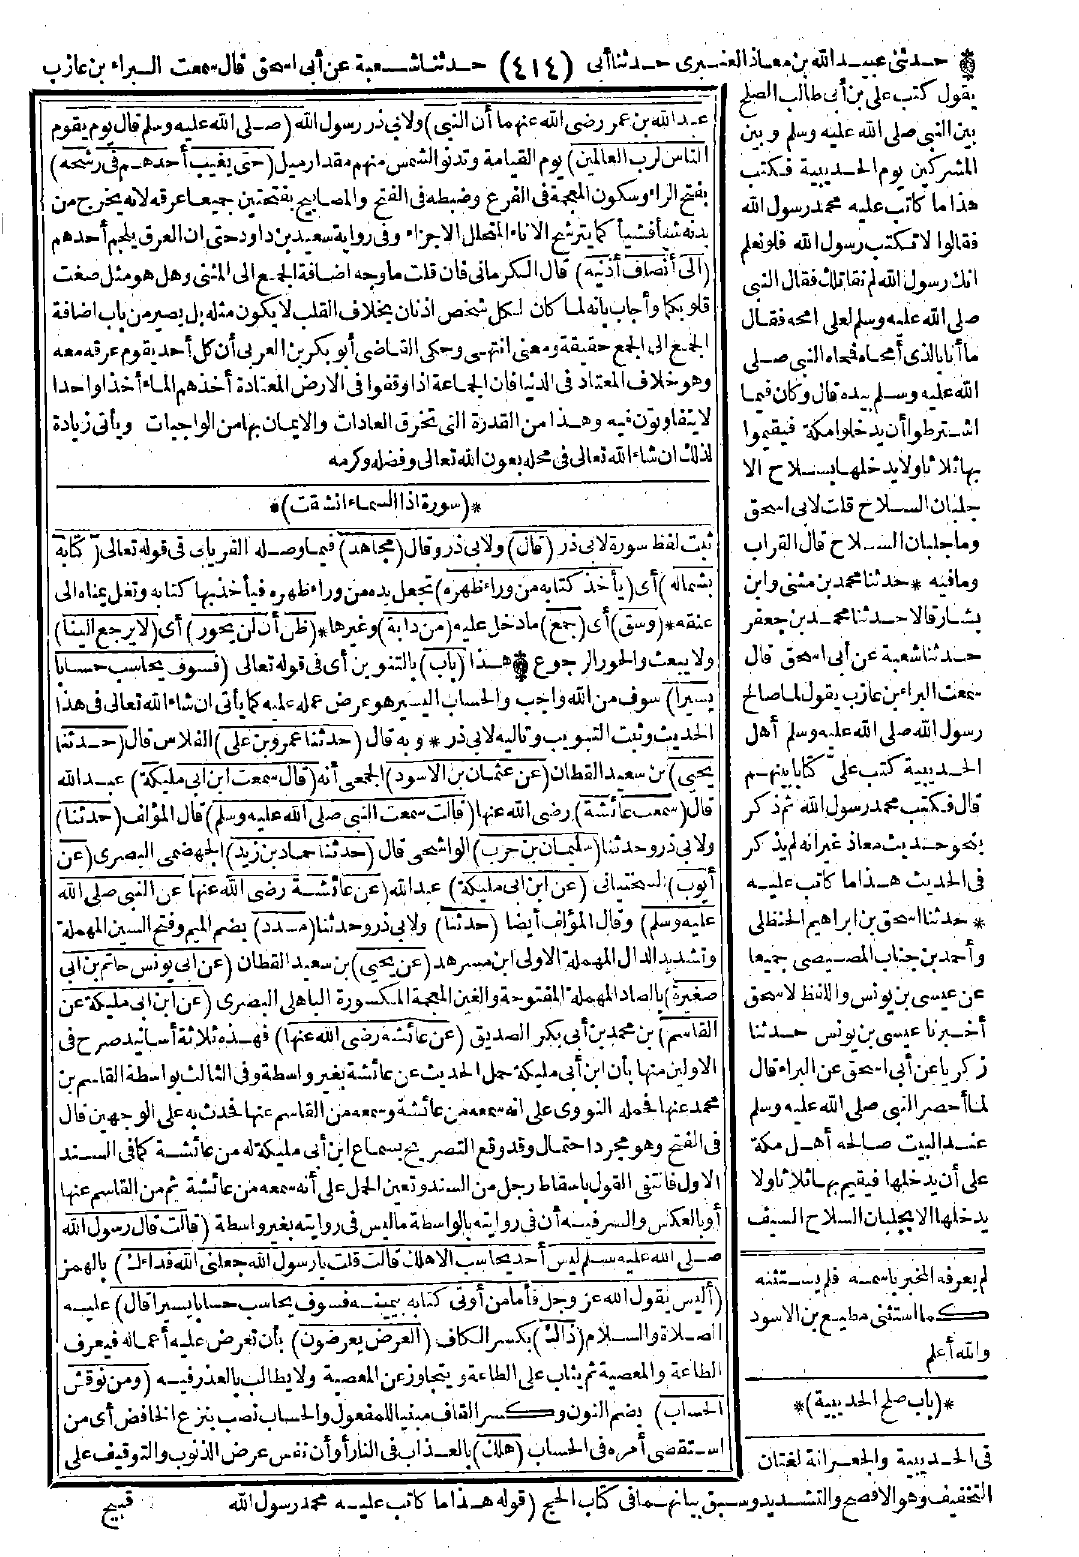 * حدثني عبيد الله بن معاذ العنبرى حدثنا أبى (٤١٤) حدثنا شعبة عن أبى اسحق قال سمعت البراء بن عازب
يقول كتب على بن أبى طالب الصلح
بين النبي صلى الله عليه وسلم وبين
المشركين يوم الحديبية فكتب
هذا ما كاتب عليه محمد رسول الله
فقالوا لا تكتب رسول الله فلو نعلم
انك رسول الله لم نقاتلك فقال النبى
صلى الله عليه وسلم لعلى امحه فقال
ما أنا بالذى أمحاه فمحاه النبى صلى
الله عليه وسلم بيده قال وكان فيما
اشترطوا أن يدخلوا مكة فيقيموا
بها ثلاثا ولا يدخلها بسلاح الا
جلبان السلاح قلت لابى اسحق
وما جلبان السلاح قال القراب
وما فيه * حدثنا محمد بن مثنى وابن
بشار قالا حدثنا محمد بن جعفر
حدثنا شعبة عن أبى اسحق قال
سمعت البراء بن عازب يقول لما صالح
رسول الله صلى الله عليه وسلم أهل
الحديبية كتب علىّ كتابا بينهم
قال فكتب محمد رسول الله ثم ذكر
بنحو حديث معاذ غير انه لم يذكر
فى الحديث هذا ما كاتب عليه
* حدثنا اسحق بن ابراهيم الحنظلى
وأحمد بن جناب المصيصى جميعا
عن عيسى بن يونس واللفظ لاسحق
أخبرنا عيسى بن يونس حدثنا
زكريا عن أبى اسحق عن البراء قال
لما أحصر النبى صلى الله عليه وسلم
عند البيت صالحه أهل مكة
على أن يدخلها فيقيم بها ثلاثا ولا
يدخلها الا بجلبان السلاح السيف
لم يعرفه المخبر باسمه فلم يستثنه
كما استثنى مطيع بن الاسود
والله أعلم
*(باب صلح الحديبية)*
فى الحديبية والجعرانة لغتان
التخفيف وهو الافصح والتشديد وسبق بيانهما فى كتاب الحج (قوله هذا ما كاتب عليه محمد رسول الله
عبد الله بن عمر رضى الله عنهما أن النبى) ولابى ذر رسول الله (صلى الله عليه وسلم قال يوم يقوم
الناس لرب العالمين) يوم القيامة وتدنو الشمس منهم مقدار ميل (حتى يغيب أحدهم فى رشحه)
بفتح الراء وسكون المعجمة فى الفرع وضبطه فى الفتح والمصابيح بفتحتين جميعا عرقه لانه يخرج من
بدنه شيأ فشيأ كما يترشح الاناء المتحلل الاجزاء وفى رواية سعيد بن داود حتى ان العرق يلجم أحدهم
(الى أنصاف أذنيه) قال الكرمانى فان قلت ما وجه اضافة الجمع الى المثنى وهل هو مثل صغت
قلوبكما وأجاب بانه لما كان لكل شخص اذنان بخلاف القلب لا يكون مثله بل يصير من باب اضافة
الجمع الى الجمع حقيقة ومعنى انتهى وحكى القاضى أبو بكر بن العربى أن كل أحد يقوم عرقه معه
وهو خلاف المعتاد فى الدنيا فان الجماعة اذا وقفوا فى الارض المعتادة أخذهم الماء أخذا واحدا
لا يتفاوتون فيه وهذا من القدرة التى تخرق العادات والايمان بها من الواجبات ويأتى زيادة
لذلك ان شاء الله تعالى فى محله بعون الله تعالى وفضله وكرمه
*(سورة اذا السماء انشقت)*
ثبت لفظ سورة لابى ذر (قال) ولابى ذر وقال (مجاهد) فيما وصله الفريابى فى قوله تعالى (كتابه
بشماله) أى (يأخذ كتابه من وراء ظهره) تجعل يده من وراء ظهره فيأخذ بها كتابه وتغل يمناه الى
عنقه * (وسق) أى (جمع) ما دخل عليه (من دابة) وغيرها * (ظن أن لن يحور) أى (لا يرجع الينا)
ولا يبعث والحور الرجوع * هذا (باب) بالتنوين أى فى قوله تعالى (فسوف يحاسب حسابا
يسيرا) سوف من الله واجب والحساب اليسير هو عرض عمله عليه كما يأتى ان شاء الله تعالى فى هذا
الحديث وثبت التبويب وتاليه لابى ذر * وبه قال (حدثنا عمرو بن على) الفلاس قال (حدثنا
يحيى) بن سعيد القطان (عن عثمان بن الاسود) الجمحى أنه (قال سمعت ابن أبى مليكة) عبد الله
قال (سمعت عائشة) رضى الله عنها (قالت سمعت النبى صلى الله عليه وسلم) قال المؤلف (حدثنا)
ولابى ذر وحدثنا (سليمان بن حرب) الواشحى قال (حدثنا حماد بن زيد) الجهضمى البصرى (عن
أيوب) السختيانى (عن ابن أبى مليكة) عبد الله (عن عائشة رضى الله عنها عن النبى صلى الله
عليه وسلم) وقال المؤلف أيضا (حدثنا) ولابى ذر وحدثنا (مسدد) بضم الميم وفتح السين المهملة
وتشديد الدال المهملة الاولى ابن مسرهد (عن يحيى) بن سعيد القطان (عن أبى يونس حاتم بن أبى
صغيرة) بالصاد المهملة المفتوحة والغين المعجمة المكسورة الباهلى البصرى (عن ابن أبى مليكة عن
القاسم) بن محمد بن أبى بكر الصديق (عن عائشة رضى الله عنها) فهذه ثلاثة أسانيد صرح فى
الاولين منها بأن ابن أبى مليكة حمل الحديث عن عائشة بغير واسطة وفى الثالث بواسطة القاسم بن
محمد عنها فحمله النووى على انه سمعه من عائشة وسمعه من القاسم عنها فحدث به على الوجهين قال
فى الفتح وهو مجرد احتمال وقد وقع التصريح بسماع ابن أبى مليكة له من عائشة كما فى السند
الاول فانتفى القول باسقاط رجل من السند وتعين الحمل على أنه سمعه من عائشة ثم من القاسم عنها
أو بالعكس والسر فيه أن فى روايته بالواسطة ما ليس فى روايته بغير واسطة (قالت قال رسول الله
صلى الله عليه وسلم ليس أحد يحاسب الا هلك قالت قلت يا رسول الله جعلنى الله فداءك) بالهمز
(أليس يقول الله عز وجل فأما من أوتى كتابه بيمينه فسوف يحاسب حسابا يسيرا قال) عليه
الصلاة والسلام (ذاك) بكسر الكاف (العرض يعرضون) بأن تعرض عليه أعماله فيعرف
الطاعة والمعصية ثم يثاب على الطاعة ويتجاوز عن المعصية ولا يطالب بالعذر فيه (ومن نوقش
الحساب) بضم النون وكسر القاف مبنيا للمفعول والحساب نصب بنزع الخافض أى من
استقصى أمره فى الحساب (هلك) بالعذاب فى النار أو أن نفس عرض الذنوب والتوقيف على
قبيح